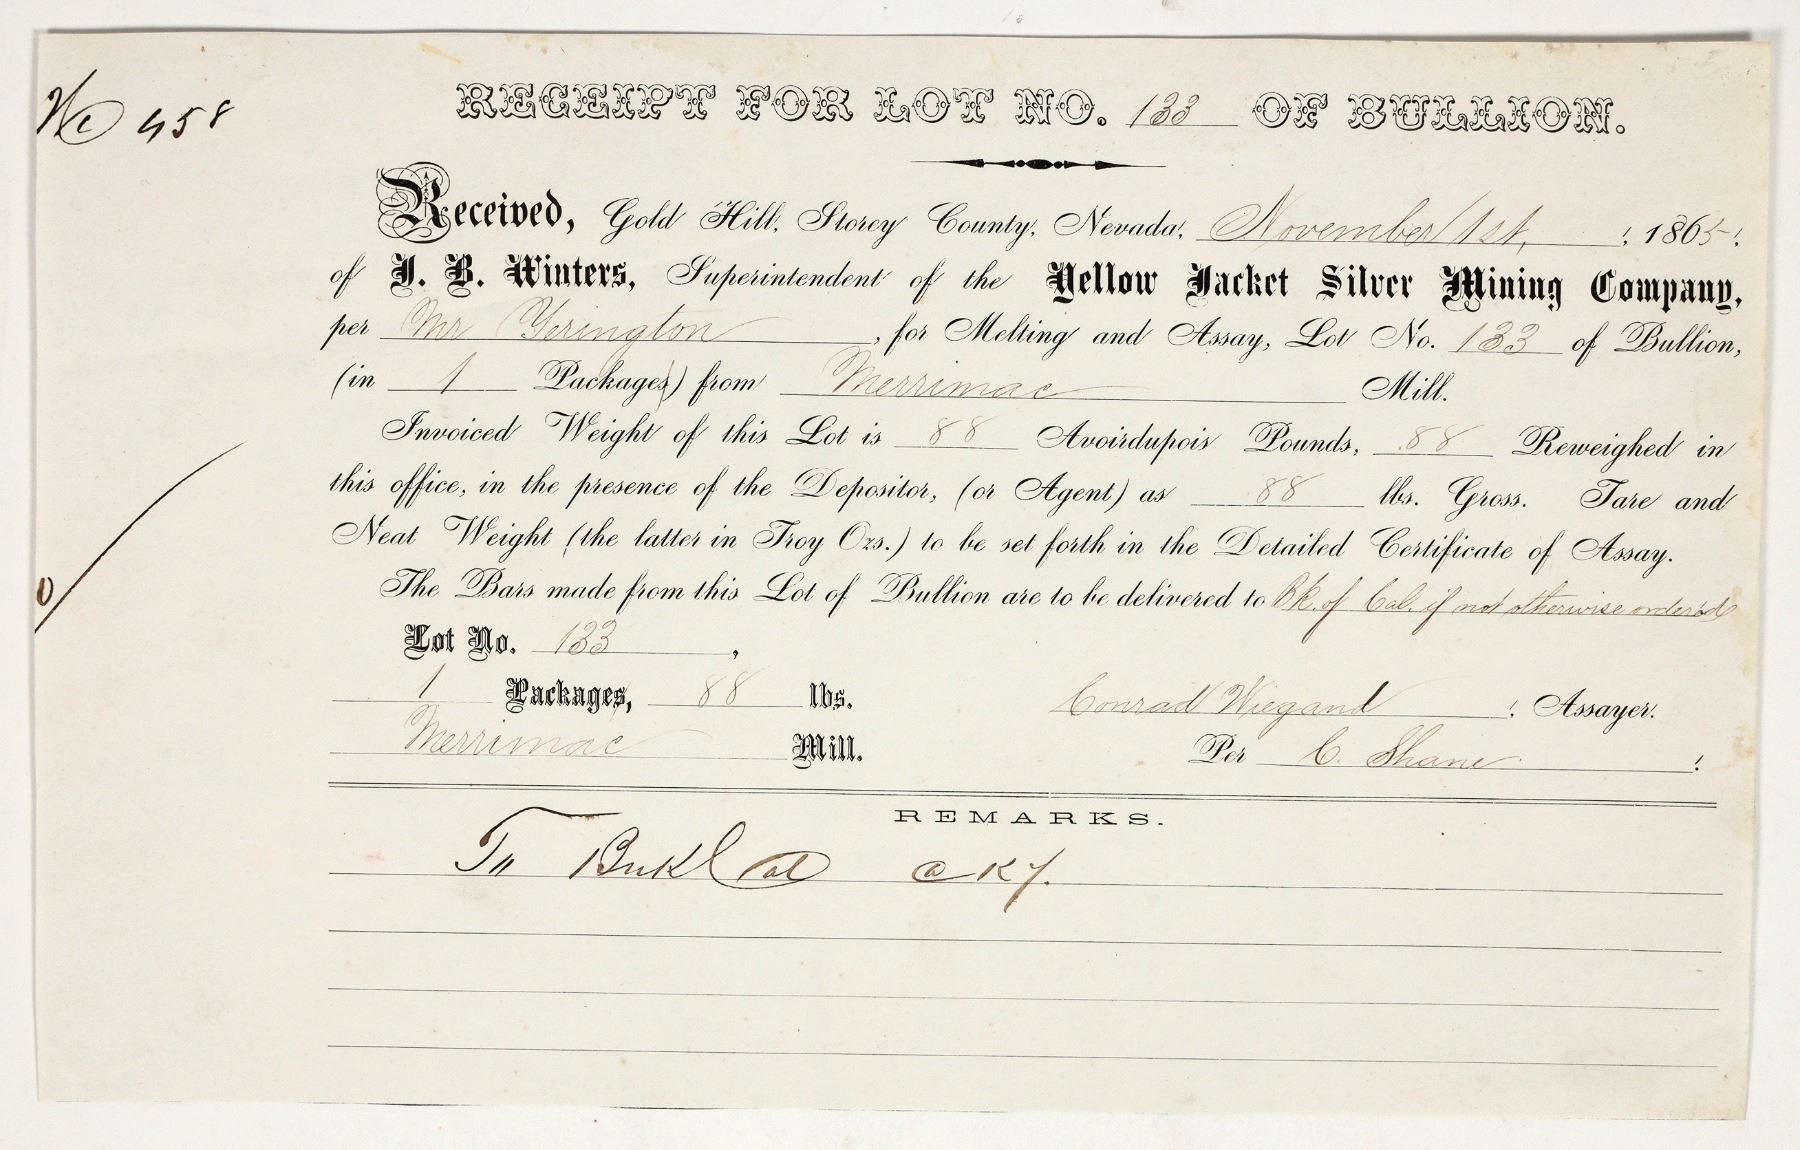 No 458
RECEIPT FOR LOT NO. 133 OF BULLION.
Received, Gold Hill, Storey County, Nevada, November 1st, 1865.
of J. B. Winters, Superintendent of the Yellow Jacket Silver Mining Company,
per Mr Yerington, for Melting and Assay, Lot No. 133 of Bullion,
(in 1 Packages) from Merrimac Mill.
Invoiced Weight of this Lot is 88 Avoirdupois Pounds, 88 Reweighed in
this office, in the presence of the Depositor, (or Agent) as 88 lbs. Gross. Tare and
Neat Weight (the latter in Troy Ozs.) to be set forth in the Detailed Certificate of Assay.
The Bars made from this Lot of Bullion are to be delivered to Bk. of Cal. if not otherwise ordered
Lot No. 133,
1 Packages, 88 lbs.
Conrad Wiegand, Assayer.
Merrimac Mill.
Per C. Shane.
REMARKS.